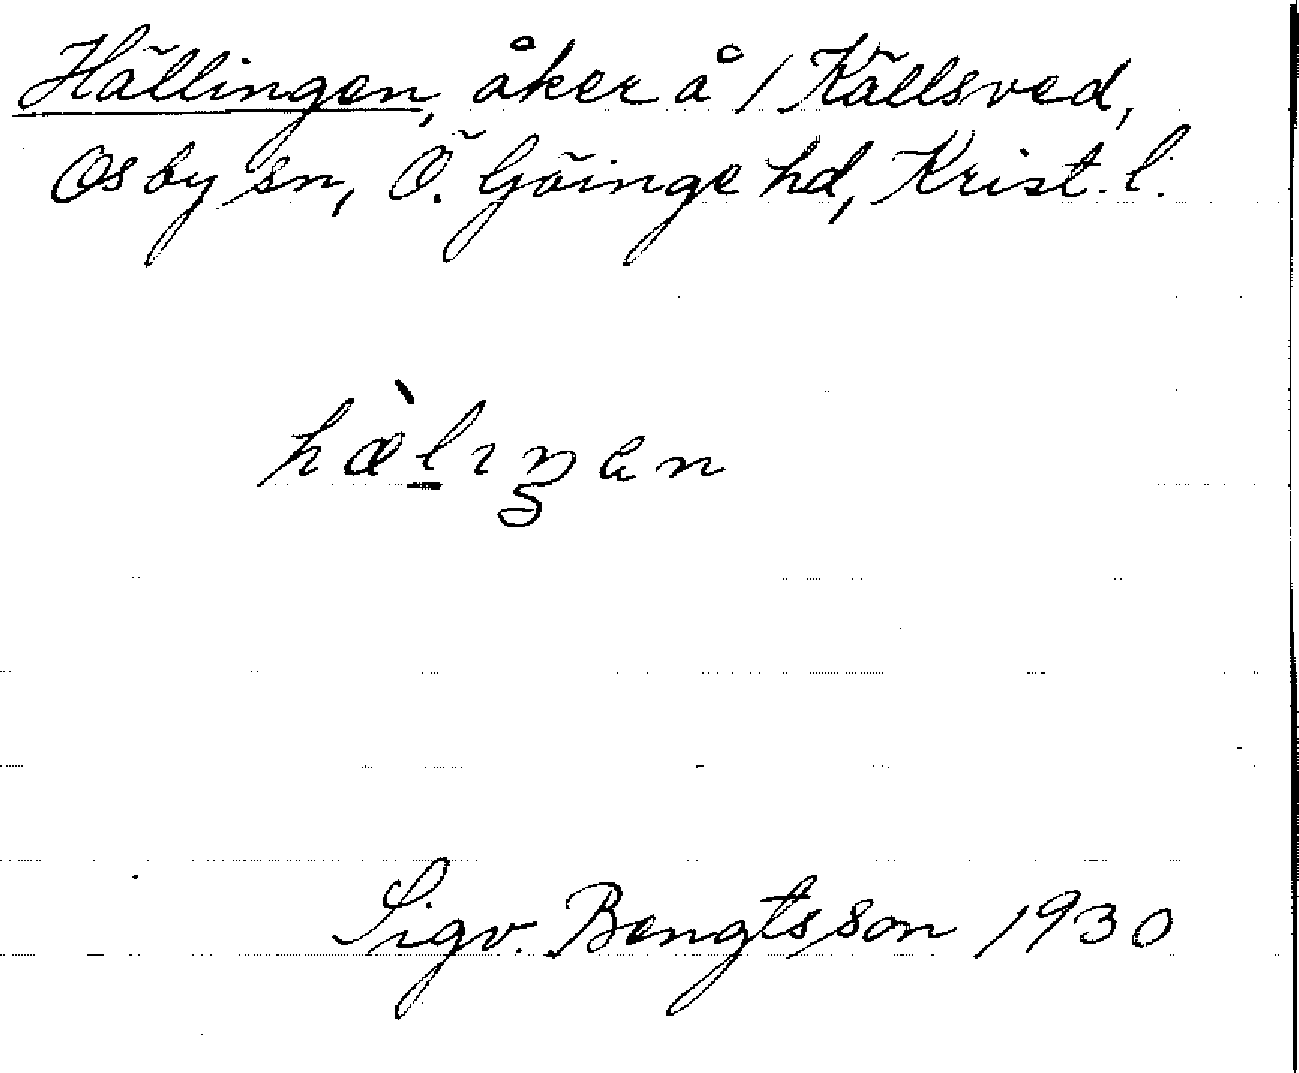 Hällingen, åker å 1 Källsved,
Osby sn, Ö. Göinge hd, Krist. l.
hæ̀lıŋən
Sigv. Bengtsson 1930